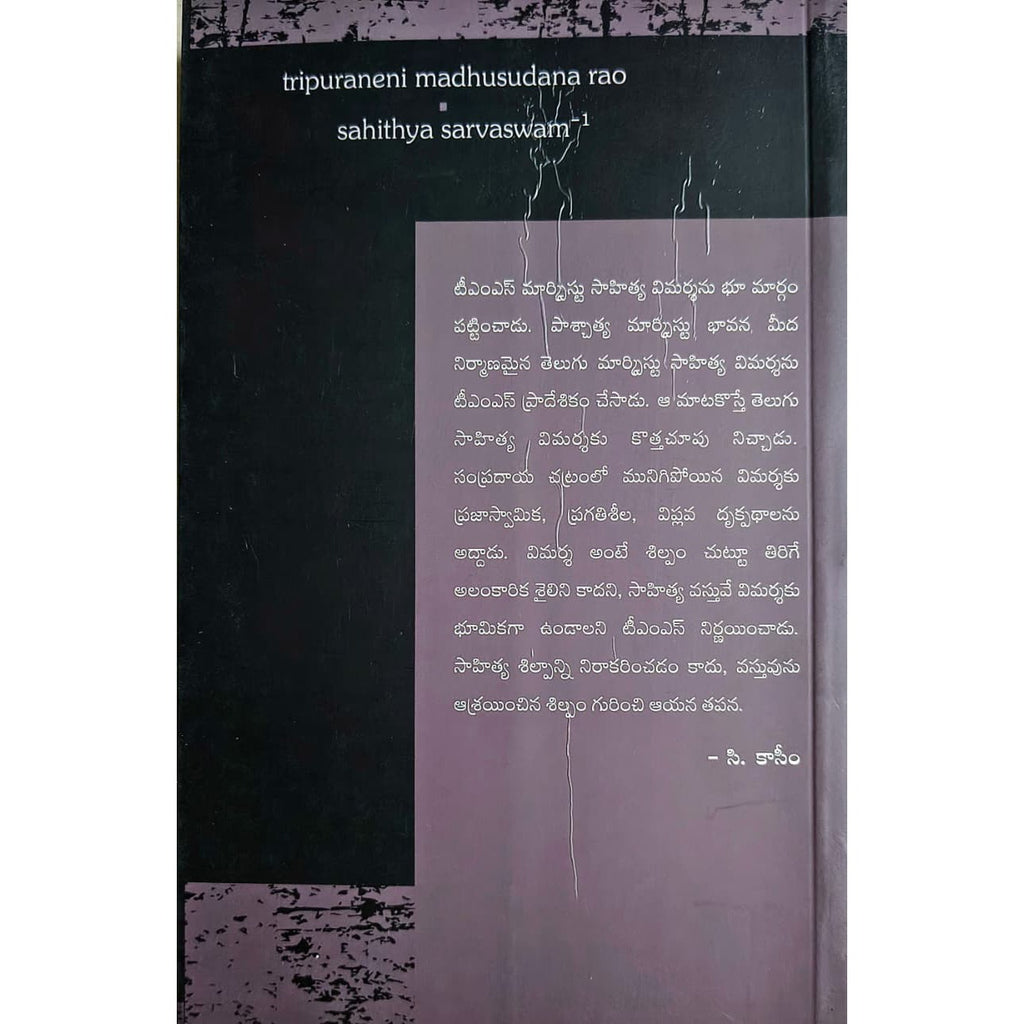 tripuraneni madhusudana rao
sahithya sarvaswam-1
టీఎంఎస్ మార్క్సిస్టు సాహిత్య విమర్శను భూ మార్గం
పట్టించాడు. పాశ్చాత్య మార్క్సిస్టు భావన మీద
నిర్మాణమైన తెలుగు మార్క్సిస్టు సాహిత్య విమర్శను
టీఎంఎస్ ప్రాదేశికం చేసాడు. ఆ మాటకొస్తే తెలుగు
సాహిత్య విమర్శకు కొత్తచూపు నిచ్చాడు.
సంప్రదాయ చట్రంలో మునిగిపోయిన విమర్శకు
ప్రజాస్వామిక, ప్రగతిశీల, విప్లవ దృక్పథాలను
అద్దాడు. విమర్శ అంటే శిల్పం చుట్టూ తిరిగే
అలంకారిక శైలిని కాదని, సాహిత్య వస్తువే విమర్శకు
భూమికగా ఉండాలని టీఎంఎస్ నిర్ణయించాడు.
సాహిత్య శిల్పాన్ని నిరాకరించడం కాదు, వస్తువును
ఆశ్రయించిన శిల్పం గురించి ఆయన తపన.
– సి. కాసీం